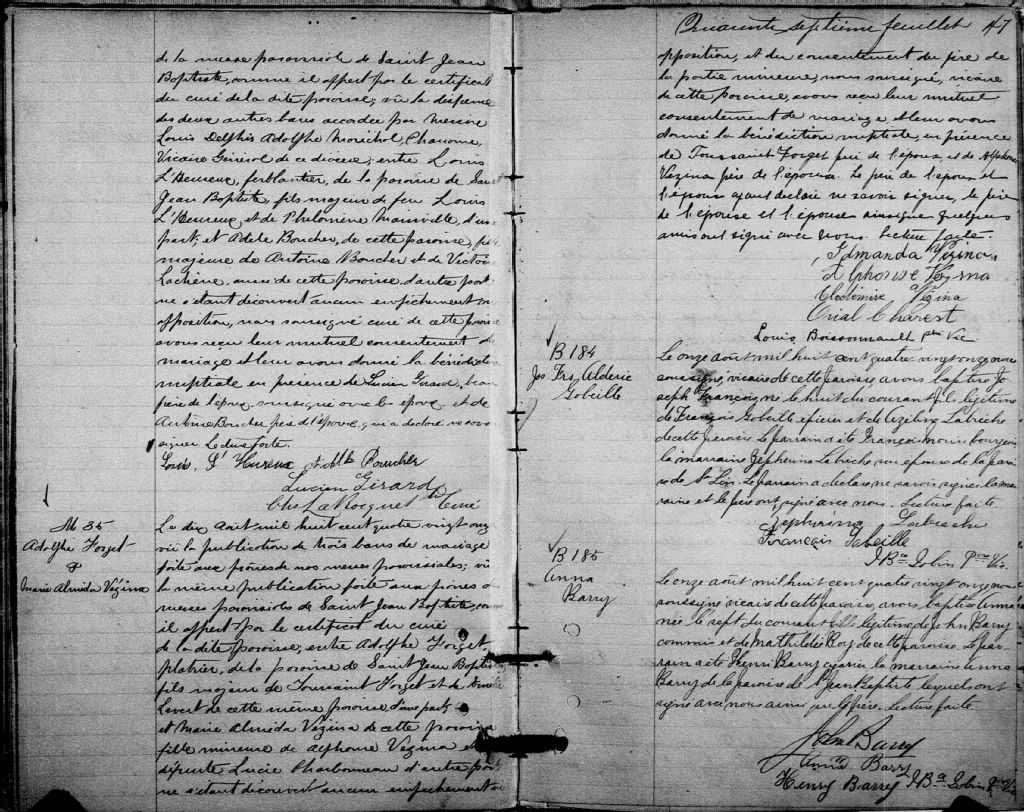 de la messe paroissiale de Saint Jean
Baptiste, comme il appert par le certificat
du curé de la dite paroisse; vû la dispense
des deux autres bans accordée par Messire
Louis Delphis Adolphe Maréchal, Chanoine,
Vicaire Général de ce diocèse; entre Louis
L'Heureux, ferblantier, de la paroisse de Saint
Jean Baptiste, fils majeur de feu Louis
L'Heureux, et de Philomène Mainville, d'une
part; et Adèle Boucher, de cette paroisse, fille
majeure de Antoine Boucher et de Victoire
aussi de cette paroisse, d'autre part
ne s'étant découvert aucun empêchement ou
opposition, nous soussigné curé de cette paroisse
avons reçu leur mutuel consentement de
mariage et leur avons donné la bénédiction
nuptiale en présence de Lucien Girard, beau
père de l'époux, soussigné avec les époux et de
Antoine Boucher père de l'épouse, qui a déclaré ne savoir
signer Lecture faite.
Louis L'Hureux Adèle Boucher
Lucien Girard
Chs LaRocque ptre Curé
M 35
Adolphe Forget
&
Marie Almida Vézina
Le dix Août mil huit cent quatre vingt onze
vû la publication de trois bans de mariage
faite aux prônes de nos messes paroissiales; vû
la même publication faite aux prônes des
messes paroissiales de Saint Jean Baptiste, comme
il appert par le certificat du curé
de la dite paroisse; entre Adolphe Forget,
plâtrier, de la paroisse de Saint Jean Baptiste
fils majeur de Toussaint Forget et de
Levert de cette même paroisse d'une part;
et Marie Almida Vézina de cette paroisse
fille mineure de Alphonse Vézina et
défunte Lucie Charbonneau d'autre part
ne s'étant découvert aucun empêchement ou
Quarante septième feuillet 47
opposition, et du consentement du père de
la partie mineure, nous soussigné, vicaire
de cette paroisse, avons reçu leur mutuel
consentement de mariage et leur avons
donné la bénédiction nuptiale, en présence
de Toussaint Forget père de l'époux, et de Alphonse
Vézina père de l'épouse. Le père de l'époux et
l'époux ayant déclaré ne savoir signer, le père
de l'épouse et l'épouse ainsi que quelques
amis ont signé avec nous. Lecture faite.
Edmanda Vézina
Alphonse Vezina
Clodomire Vézina
Orial Charest
Louis Boissonnault ptre Vic
B 184
Jos Frs Aldéric
Gobeille
Le onze août mil huit cent quatre vingt onze nous
soussigné, vicaire de cette paroisse, avons baptisé Jo
seph François né le huit du courant fils légitime
de François Gobeille épicier et de Azéline Labrèche
de cette paroisse. Le parrain a été François morin bourgeois
la marraine Zéphirina Labrèche son épouse de la parois
se de St Lin. Le parrain a déclaré ne savoir signer, la mar
raine et le père ont signé avec nous. Lecture faite.
Zéphirina Labrèche
François Gobeille
J Bte Jobin Ptre Vic
B 185
Anna
Barry
Le onze août mil huit cent quatre vingt onze nous
soussigné vicaire de cette paroisse, avons baptisé Anna
née le sept du courant fille légitime de John Barry
commis et de Mathilde Roy de cette paroisse. Le par
rain a été Henri Barry la marraine Anna
Barry de la paroisse de St Jean Baptiste lesquels ont
signé avec nous ainsi que le père. Lecture faite.
John Barry
Anna Barry
Henry Barry J Bte Jobin Ptre Vic